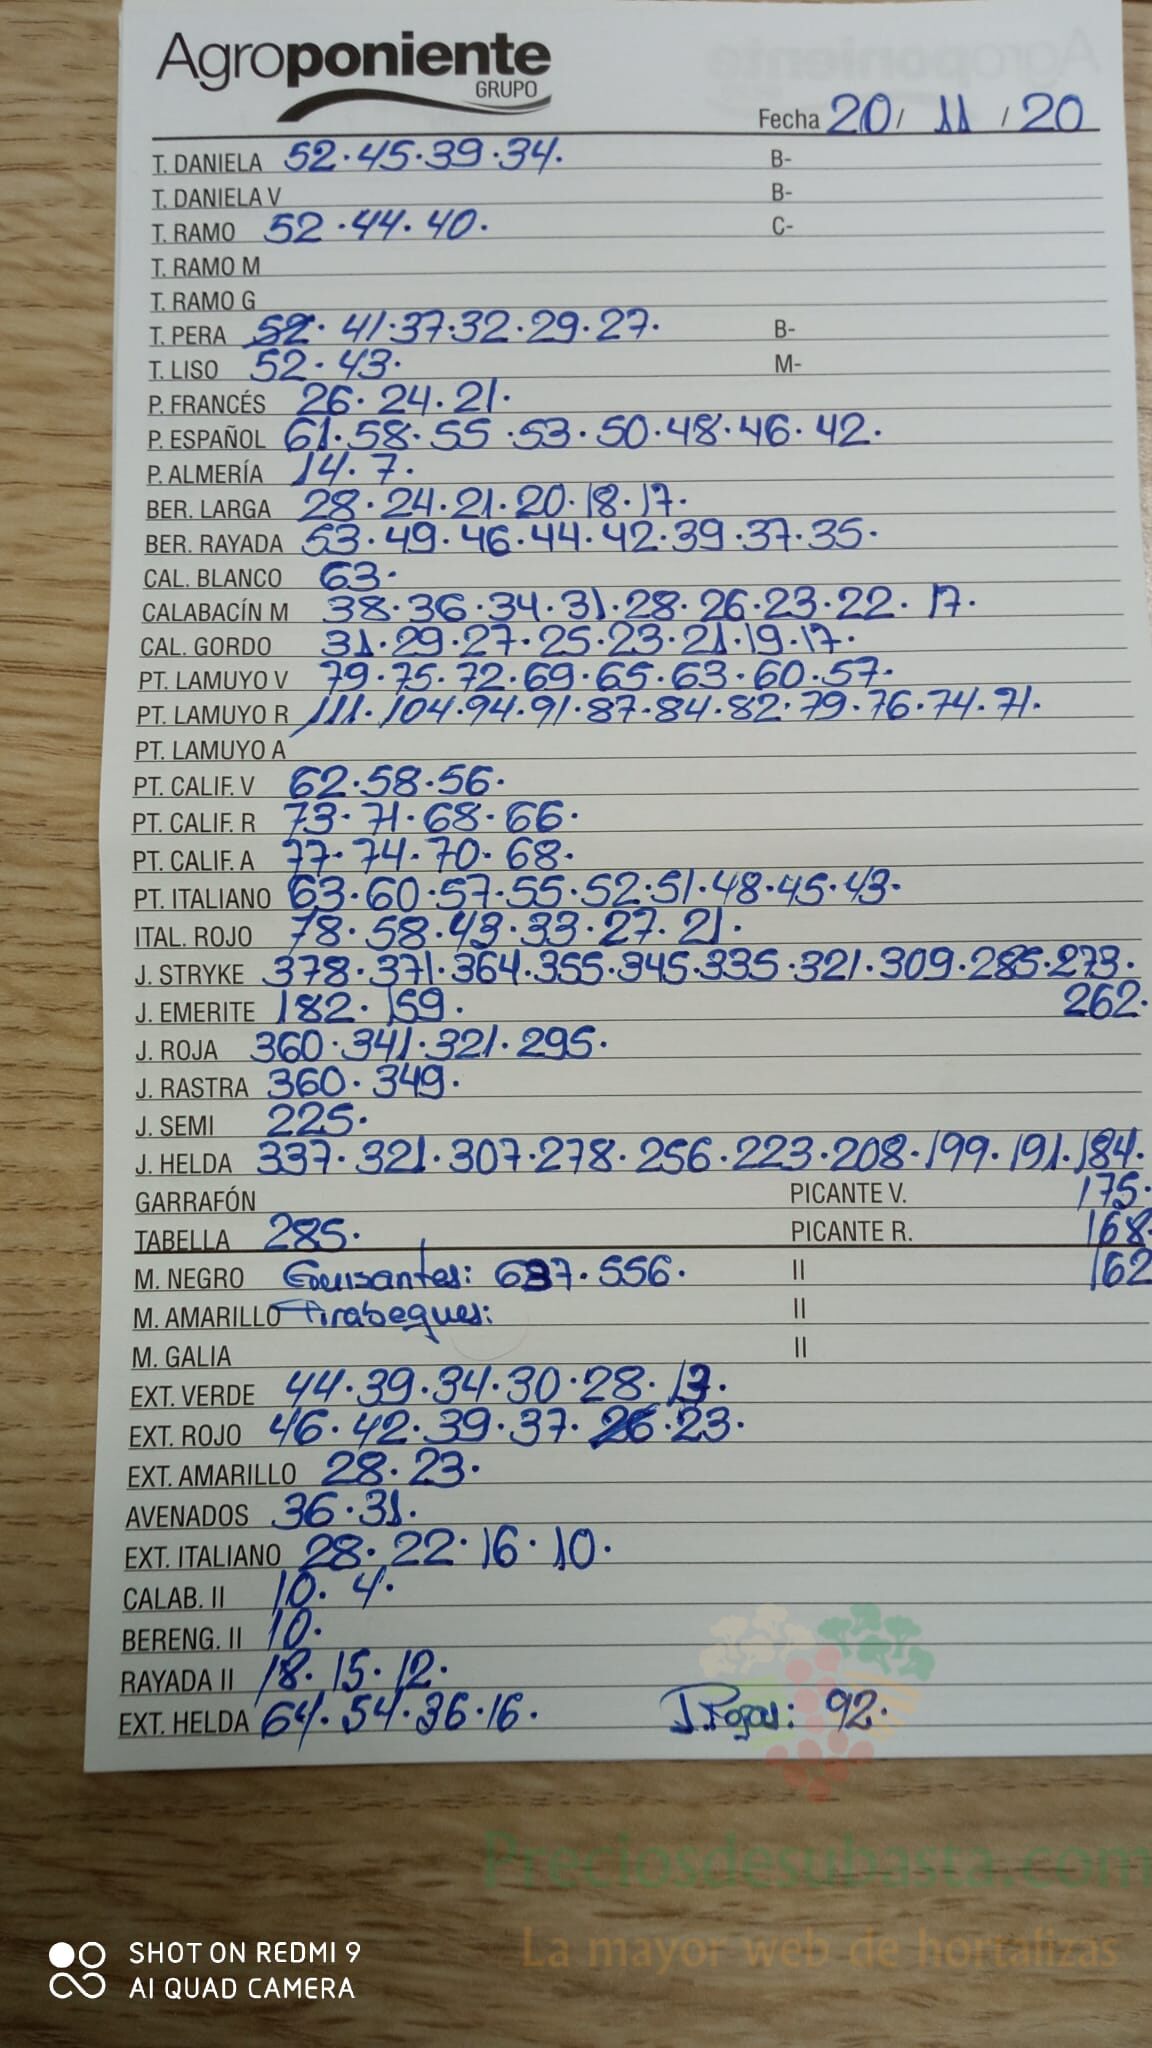 Agroponiente
GRUPO
Fecha 20/ 11 / 20
T. DANIELA 52·45·39·34· B-
T. DANIELA V B-
T. RAMO 52·44·40· C-
T. RAMO M
T. RAMO G
T. PERA 52·41·37·32·29·27· B-
T. LISO 52·43· M-
P. FRANCÉS 26·24·21·
P. ESPAÑOL 61·58·55·53·50·48·46·42·
P. ALMERÍA 14·7·
BER. LARGA 28·24·21·20·18·17·
BER. RAYADA 53·49·46·44·42·39·37·35·
CAL. BLANCO 63·
CALABACÍN M 38·36·34·31·28·26·23·22·17·
CAL. GORDO 31·29·27·25·23·21·19·17·
PT. LAMUYO V 79·75·72·69·65·63·60·57·
PT. LAMUYO R 111·104·94·91·87·84·82·79·76·74·71·
PT. LAMUYO A
PT. CALIF. V 62·58·56·
PT. CALIF. R 73·71·68·66·
PT. CALIF. A 77·74·70·68·
PT. ITALIANO 63·60·57·55·52·51·48·45·43·
ITAL. ROJO 78·58·43·33·27·21·
J. STRYKE 378·371·364·355·345·335·321·309·285·273·
J. EMERITE 182·159· 262·
J. ROJA 360·341·321·295·
J. RASTRA 360·349·
J. SEMI 225·
J. HELDA 337·321·307·278·256·223·208·199·191·184·
GARRAFÓN PICANTE V. 175·
TABELLA 285· PICANTE R. 168·
M. NEGRO Guisantes: 637·556· II 162
M. AMARILLO Tirabeques: II
M. GALIA II
EXT. VERDE 44·39·34·30·28·13·
EXT. ROJO 46·42·39·37·26·23·
EXT. AMARILLO 28·23·
AVENADOS 36·31·
EXT. ITALIANO 28·22·16·10·
CALAB. II 10·4·
BERENG. II 10·
RAYADA II 18·15·12·
EXT. HELDA 64·54·36·16· 92·
Preciosdesubasta.com
La mayor web de hortalizas
SHOT ON REDMI 9
AI QUAD CAMERA